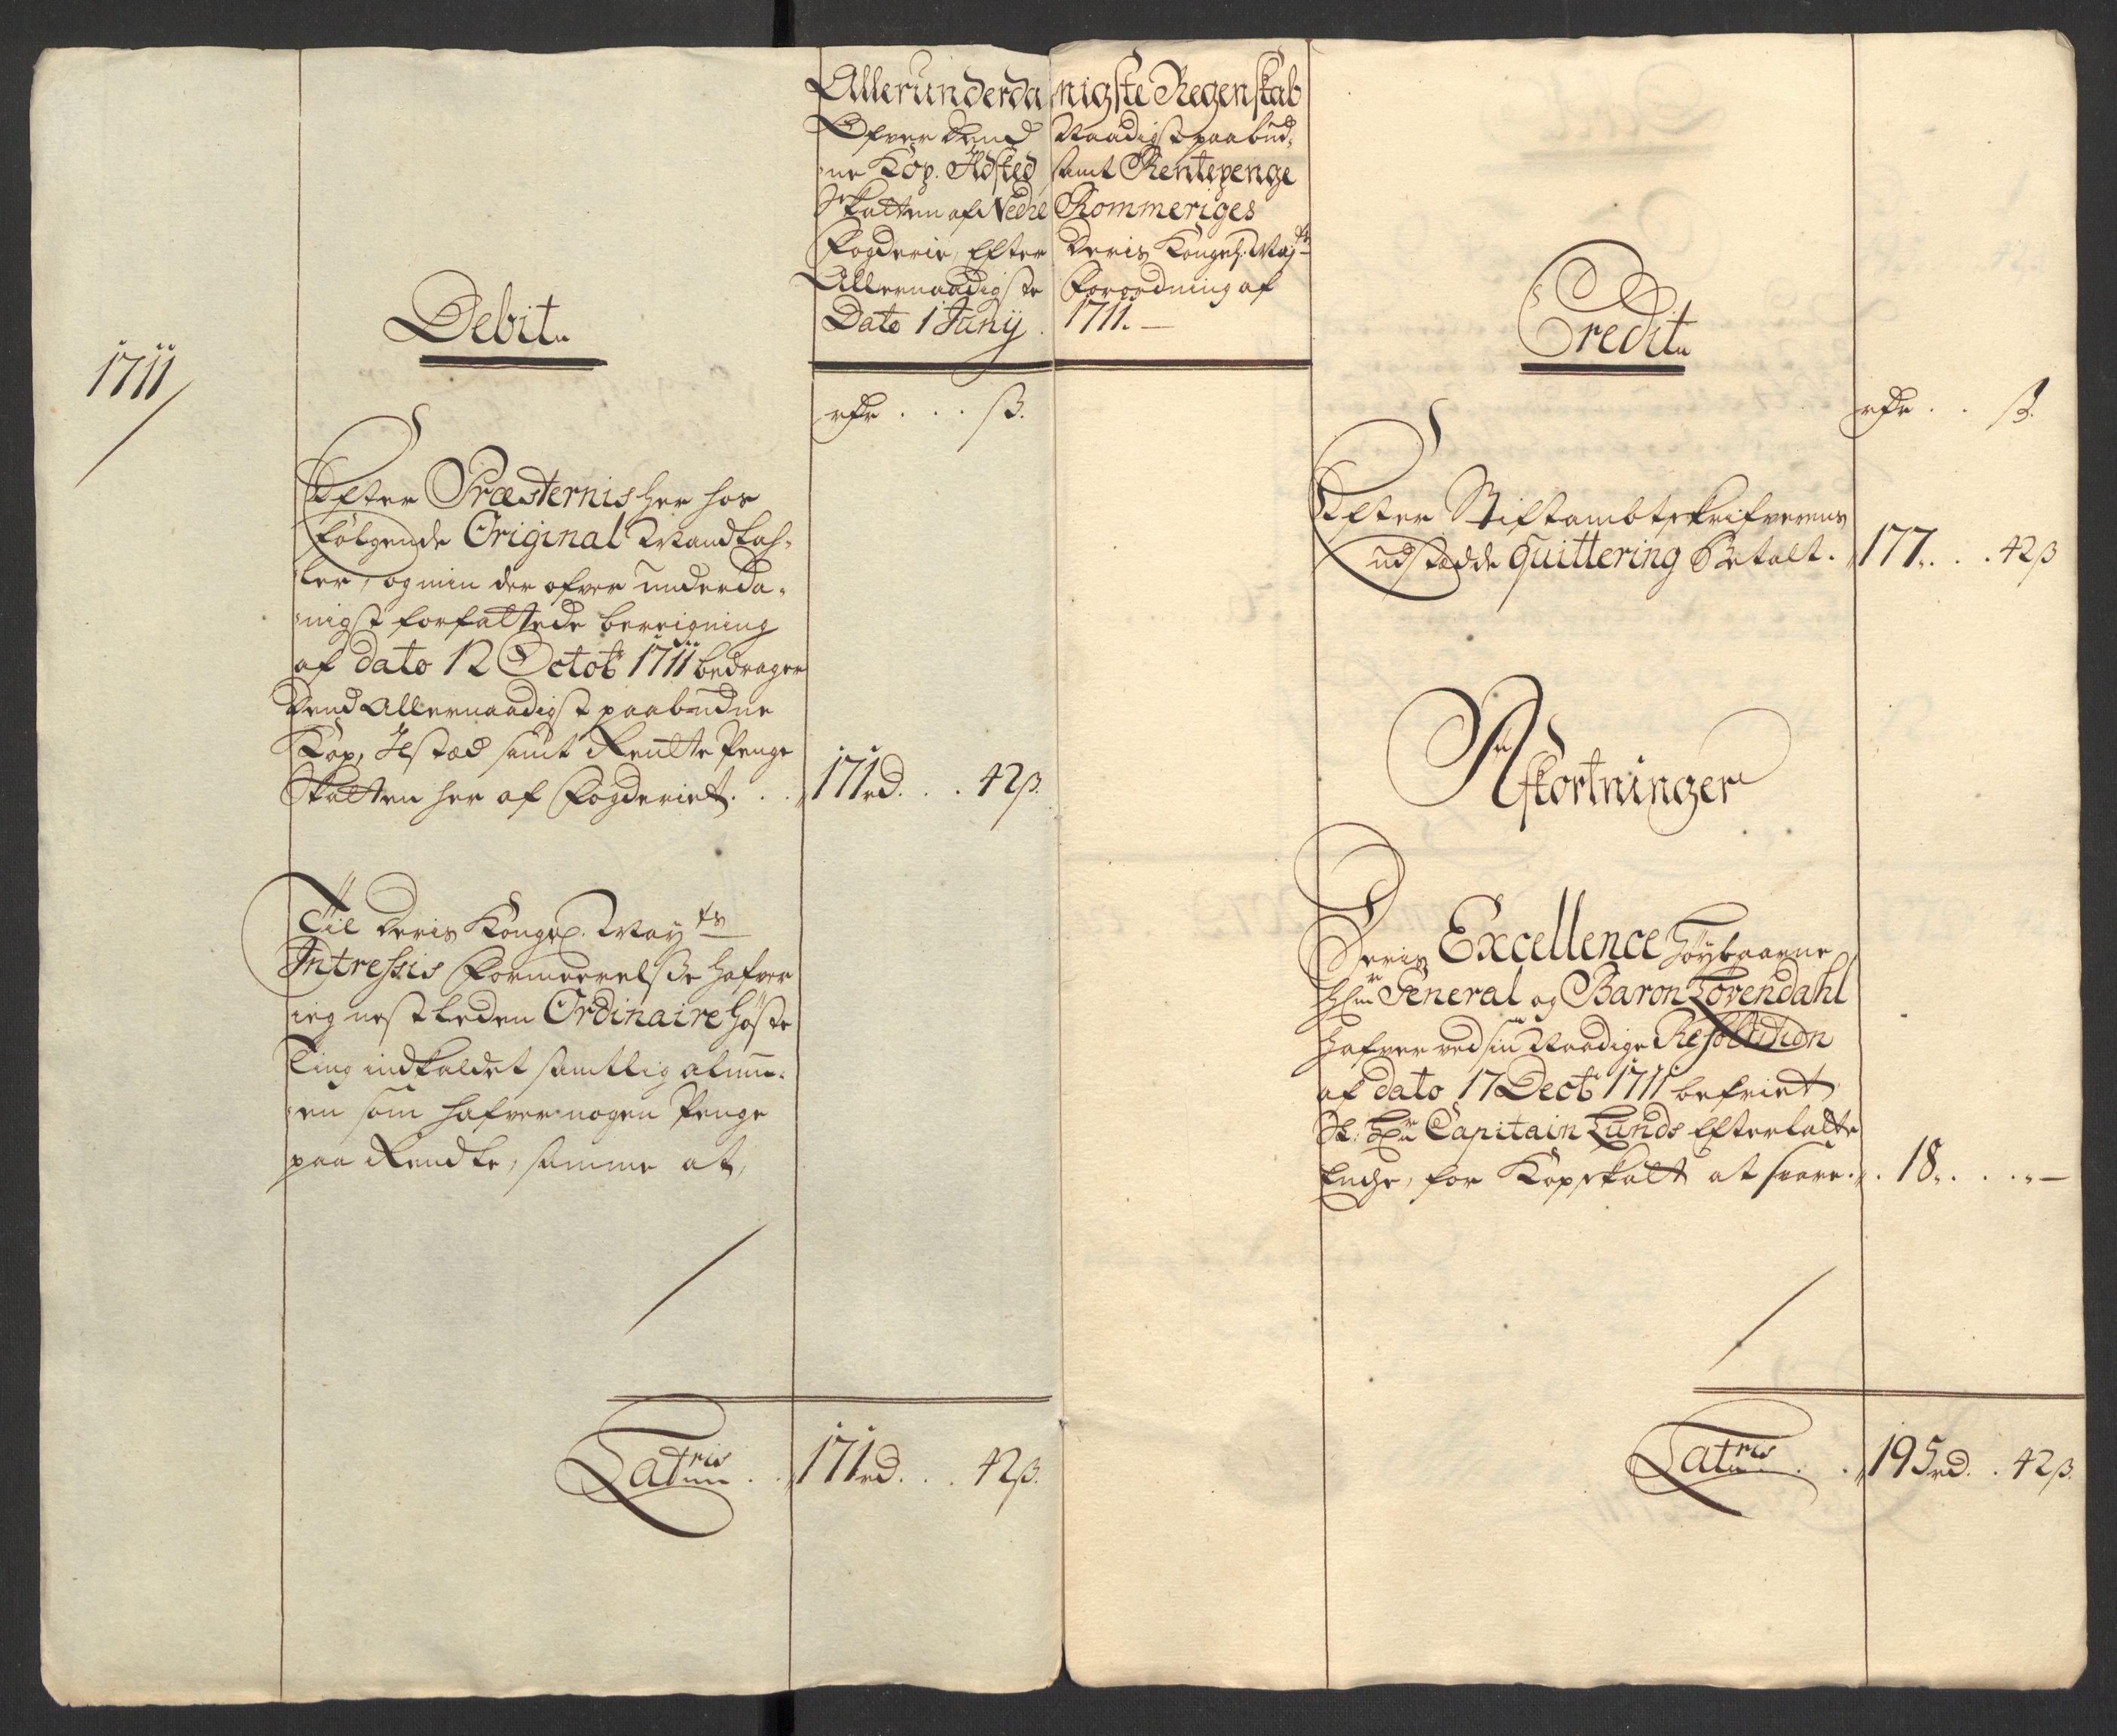 Allerunderdanigste Regenskab
Ofver dend Naadigst paabud-
ne Kop. Ildsted samt Rentepenge
Skatten af Nedre Rommeriges
Fogderie, Efter Deris Kongel. May.ts
Allernaadigste Forordning af
Dato 1 Junij 1711. —
1711
Debit.
rdr . . . ß.
Efter Præsternis her hos
følgende Original Mandtah-
ler, og min der ofver underda-
nigst forfattede bereigning
af dato 12 Octobr 1711 bedrager
dend Allernaadigst paabudne
Kop, Ilstæd samt Rentte Penge
Skatten her af Fogderiet . . . 171 rd. . . 42 ß.
Til Deris Kongel. May.ts
Intressis Formeerelsse hafver
ieg nest leden Ordinaire Høste
Ting indkaldet samtlig almu-
en som hafver nogen Penge
paa Rendte, samme at,
Latris . . 171 rd. . . 42 ß.
Credit.
rdr . . ß.
Efter Stiftambtskrifverens
udstædde quittering Betalt . 177. . . 42 ß
Afkortninger
Deris Excellence Høybaarne
Hr General og Baron Løvendahl
hafver ved sin Naadige Resolution
af dato 17 Decbr 1711 befriet
Sl: Hr Capitain Lunds Efterlatte
Enche, for Kopskatt at svare . . 18. . . . —
Latris . . 195 rd. . 42 ß.